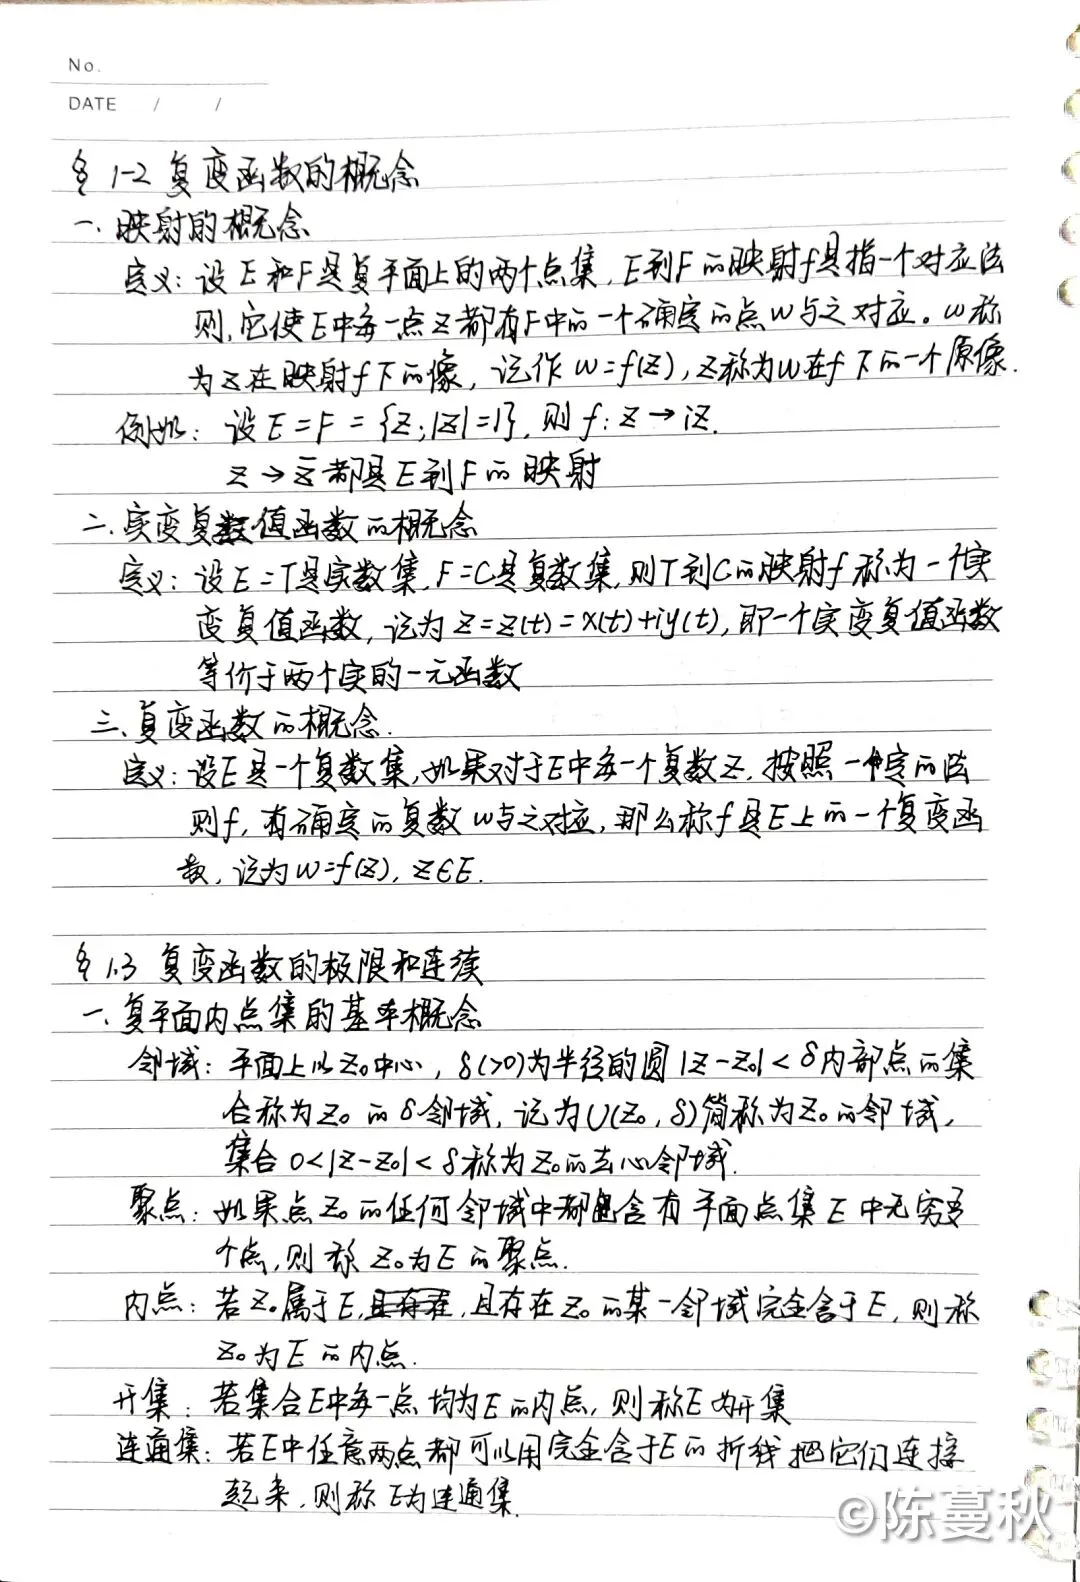 No.
DATE / /
§ 1-2 复变函数的概念
一、映射的概念
定义：设E和F是复平面上的两个点集，E到F的映射f是指一个对应法
则，它使E中每一点z都有F中的一个确定的点w与之对应。w称
为z在映射f下的像，记作 w=f(z)，z称为w在f下的一个原像.
例如：设E=F={z;|z|=1}，则 f: z→iz.
z→z̅都是E到F的映射
二、实变复数值函数的概念
定义：设E=T是实数集，F=C是复数集，则T到C的映射f称为一个实
变复值函数，记为z=z(t)=x(t)+iy(t)，即一个实变复值函数
等价于两个实的一元函数
三、复变函数的概念.
定义：设E是一个复数集，如果对于E中每一个复数z，按照一个定的法
则f，有确定的复数w与之对应，那么称f是E上的一个复变函
数，记为w=f(z)，z∈E.
§ 1.3 复变函数的极限和连续
一、复平面内点集的基本概念
邻域：平面上以z₀中心，δ(>0)为半径的圆|z-z₀|<δ内部点的集
合称为z₀的δ邻域，记为U(z₀,δ)简称为z₀的邻域，
集合 0<|z-z₀|<δ称为z₀的去心邻域.
聚点：如果点z₀的任何邻域中都包含有平面点集E中无穷多
个点，则称z₀为E的聚点.
内点：若z₀属于E，且存在，且存在z₀的某一邻域完全含于E，则称
z₀为E的内点.
开集：若集合E中每一点均为E的内点，则称E为开集
连通集：若E中任意两点都可以用完全含于E的折线把它们连接
起来，则称E为连通集.
©陈蔓秋